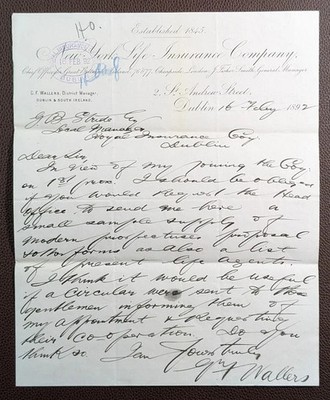 Established 1845.
York Life Insurance Company,
Chief Office for Great Britain & Ireland, 76 & 77, Cheapside, London, J. Fisher Smith, General Manager.
G. F. WALLERS, District Manager,
DUBLIN & SOUTH IRELAND.
2, St. Andrew Street,
Dublin 16 Feby 1892
Local Manager
Royal Insurance Coy
Dublin
Dear Sir
In view of my joining the Coy
on 1st prox. I should be obliged
if you would request the Head
Office to send me here a
small sample supply of
modern prospectuses proposal
& other forms as also a list
of present life agents.
I think it would be useful
if a Circular were sent to these
gentlemen informing them of
my appointment & requesting
their co-operation. Do you
think so. I am Yours truly
Wallers